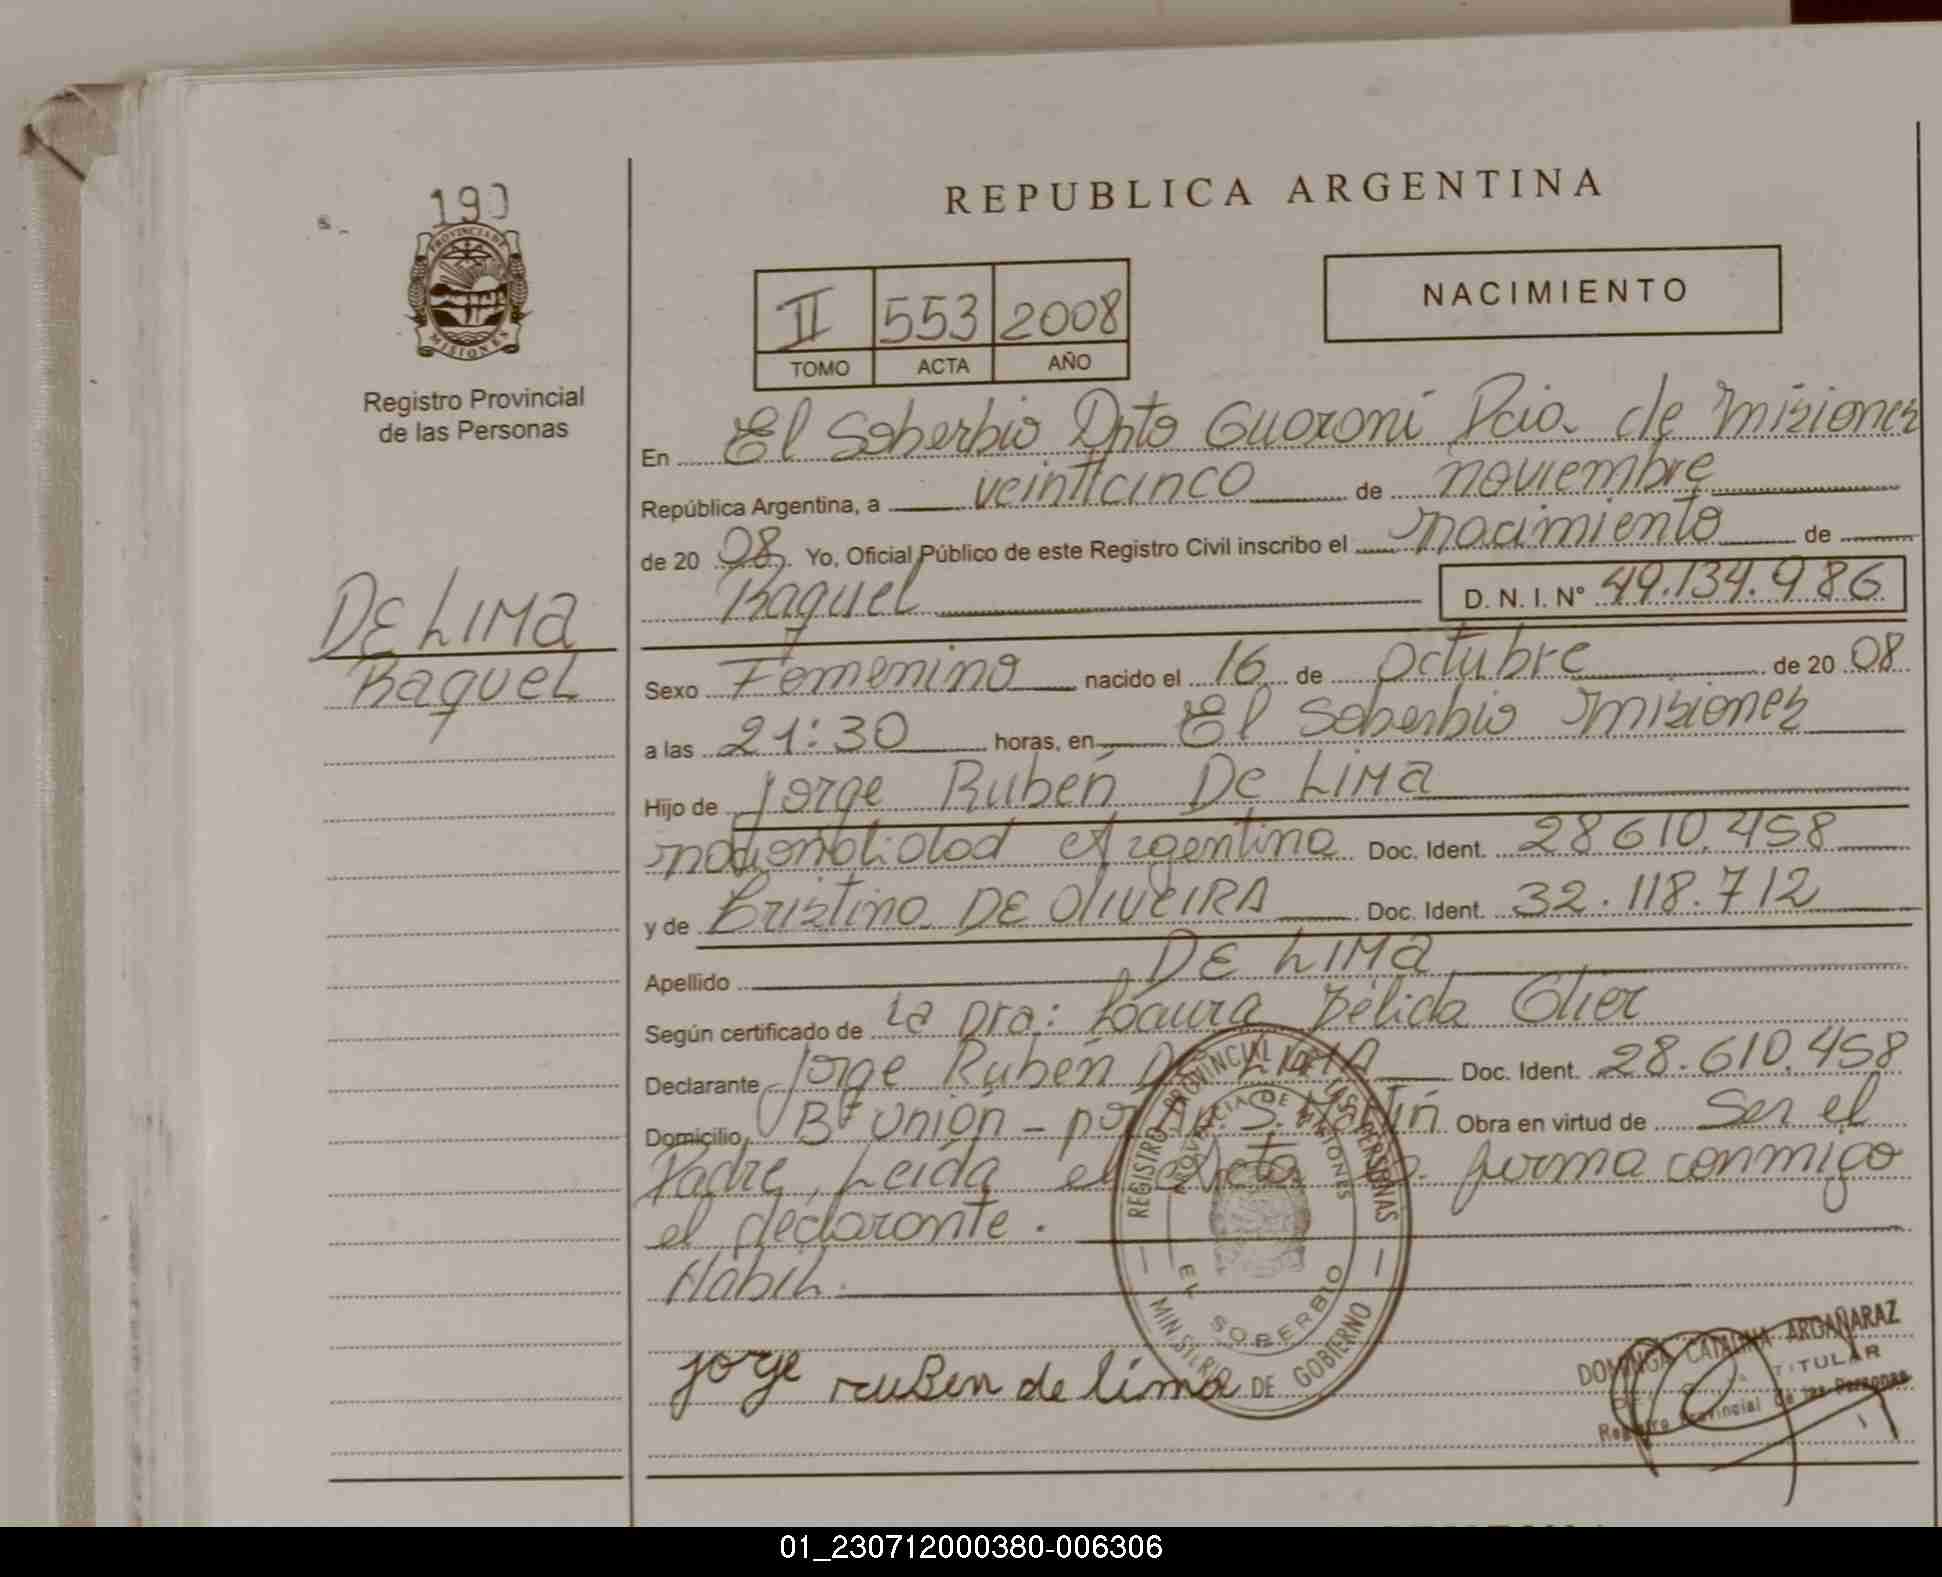 190
PROVINCIA DE
MISIONES
Registro Provincial
de las Personas
DE LIMA
Raquel
REPUBLICA ARGENTINA
II 553 2008
TOMO ACTA AÑO
NACIMIENTO
En El Soberbio Dpto Guaraní Pcia. de Misiones
República Argentina, a veinticinco de noviembre
de 20 08. Yo, Oficial Público de este Registro Civil inscribo el nacimiento de
Raquel D. N. I. N° 49.134.986
Sexo Femenino nacido el 16 de octubre de 20 08
a las 21:30 horas, en El Soberbio Misiones
Hijo de Jorge Rubén De LIMA
nacionalidad Argentina Doc. Ident. 28.610.458
y de Cristina DE OLIVEIRA Doc. Ident. 32.118.712
Apellido DE LIMA
Según certificado de la Dra: Laura Délida
Declarante Jorge Rubén DE LIMA Doc. Ident. 28.610.458
Domicilio Bº Unión - por Av. S. Martín Obra en virtud de Ser el
Padre, Leída el Acta firma conmigo
el declarante.
Habil.
jorge ruBen de lima
REGISTRO PROVINCIAL DE LAS PERSONAS
PROVINCIA DE MISIONES
EL SOBERBIO
MINISTERIO DE GOBIERNO
DOMINGA CATALINA ARGAÑARAZ
TITULAR
Registro Provincial de las Personas
01_230712000380-006306